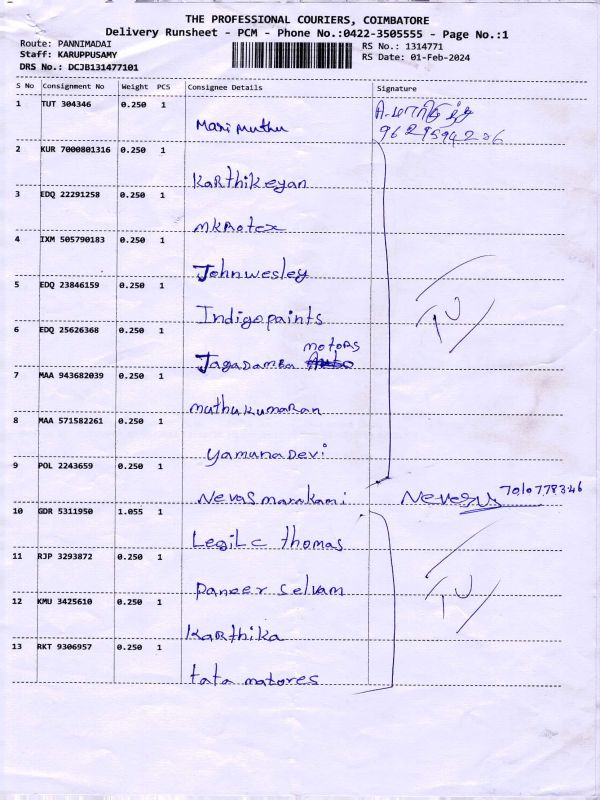 THE PROFESSIONAL COURIERS, COIMBATORE
Delivery Runsheet - PCM - Phone No.:0422-3505555 - Page No.:1
Route: PANNIMADAI RS No.: 1314771
Staff: KARUPPUSAMY RS Date: 01-Feb-2024
DRS No.: DCJB131477101
S No Consignment No Weight PCS Consignee Details Signature
1 TUT 304346 0.250 1
Mari muthu
2 KUR 7000801316 0.250 1
Karthikeyan
3 EDQ 22291258 0.250 1
MKRotex
4 IXM 505790183 0.250 1
Johnwesley
5 EDQ 23846159 0.250 1
Indigopaints
6 EDQ 25626368 0.250 1
motors
Jagadamba
7 MAA 943682039 0.250 1
muthukumaran
8 MAA 571582261 0.250 1
yamuna Devi
9 POL 2243659 0.250 1
7010778346
Nevas marakani
10 GDR 5311950 1.055 1
thomas
11 RJP 3293872 0.250 1
Paneer selvam
12 KMU 3425610 0.250 1
Karthika
13 RKT 9306957 0.250 1
tata matores